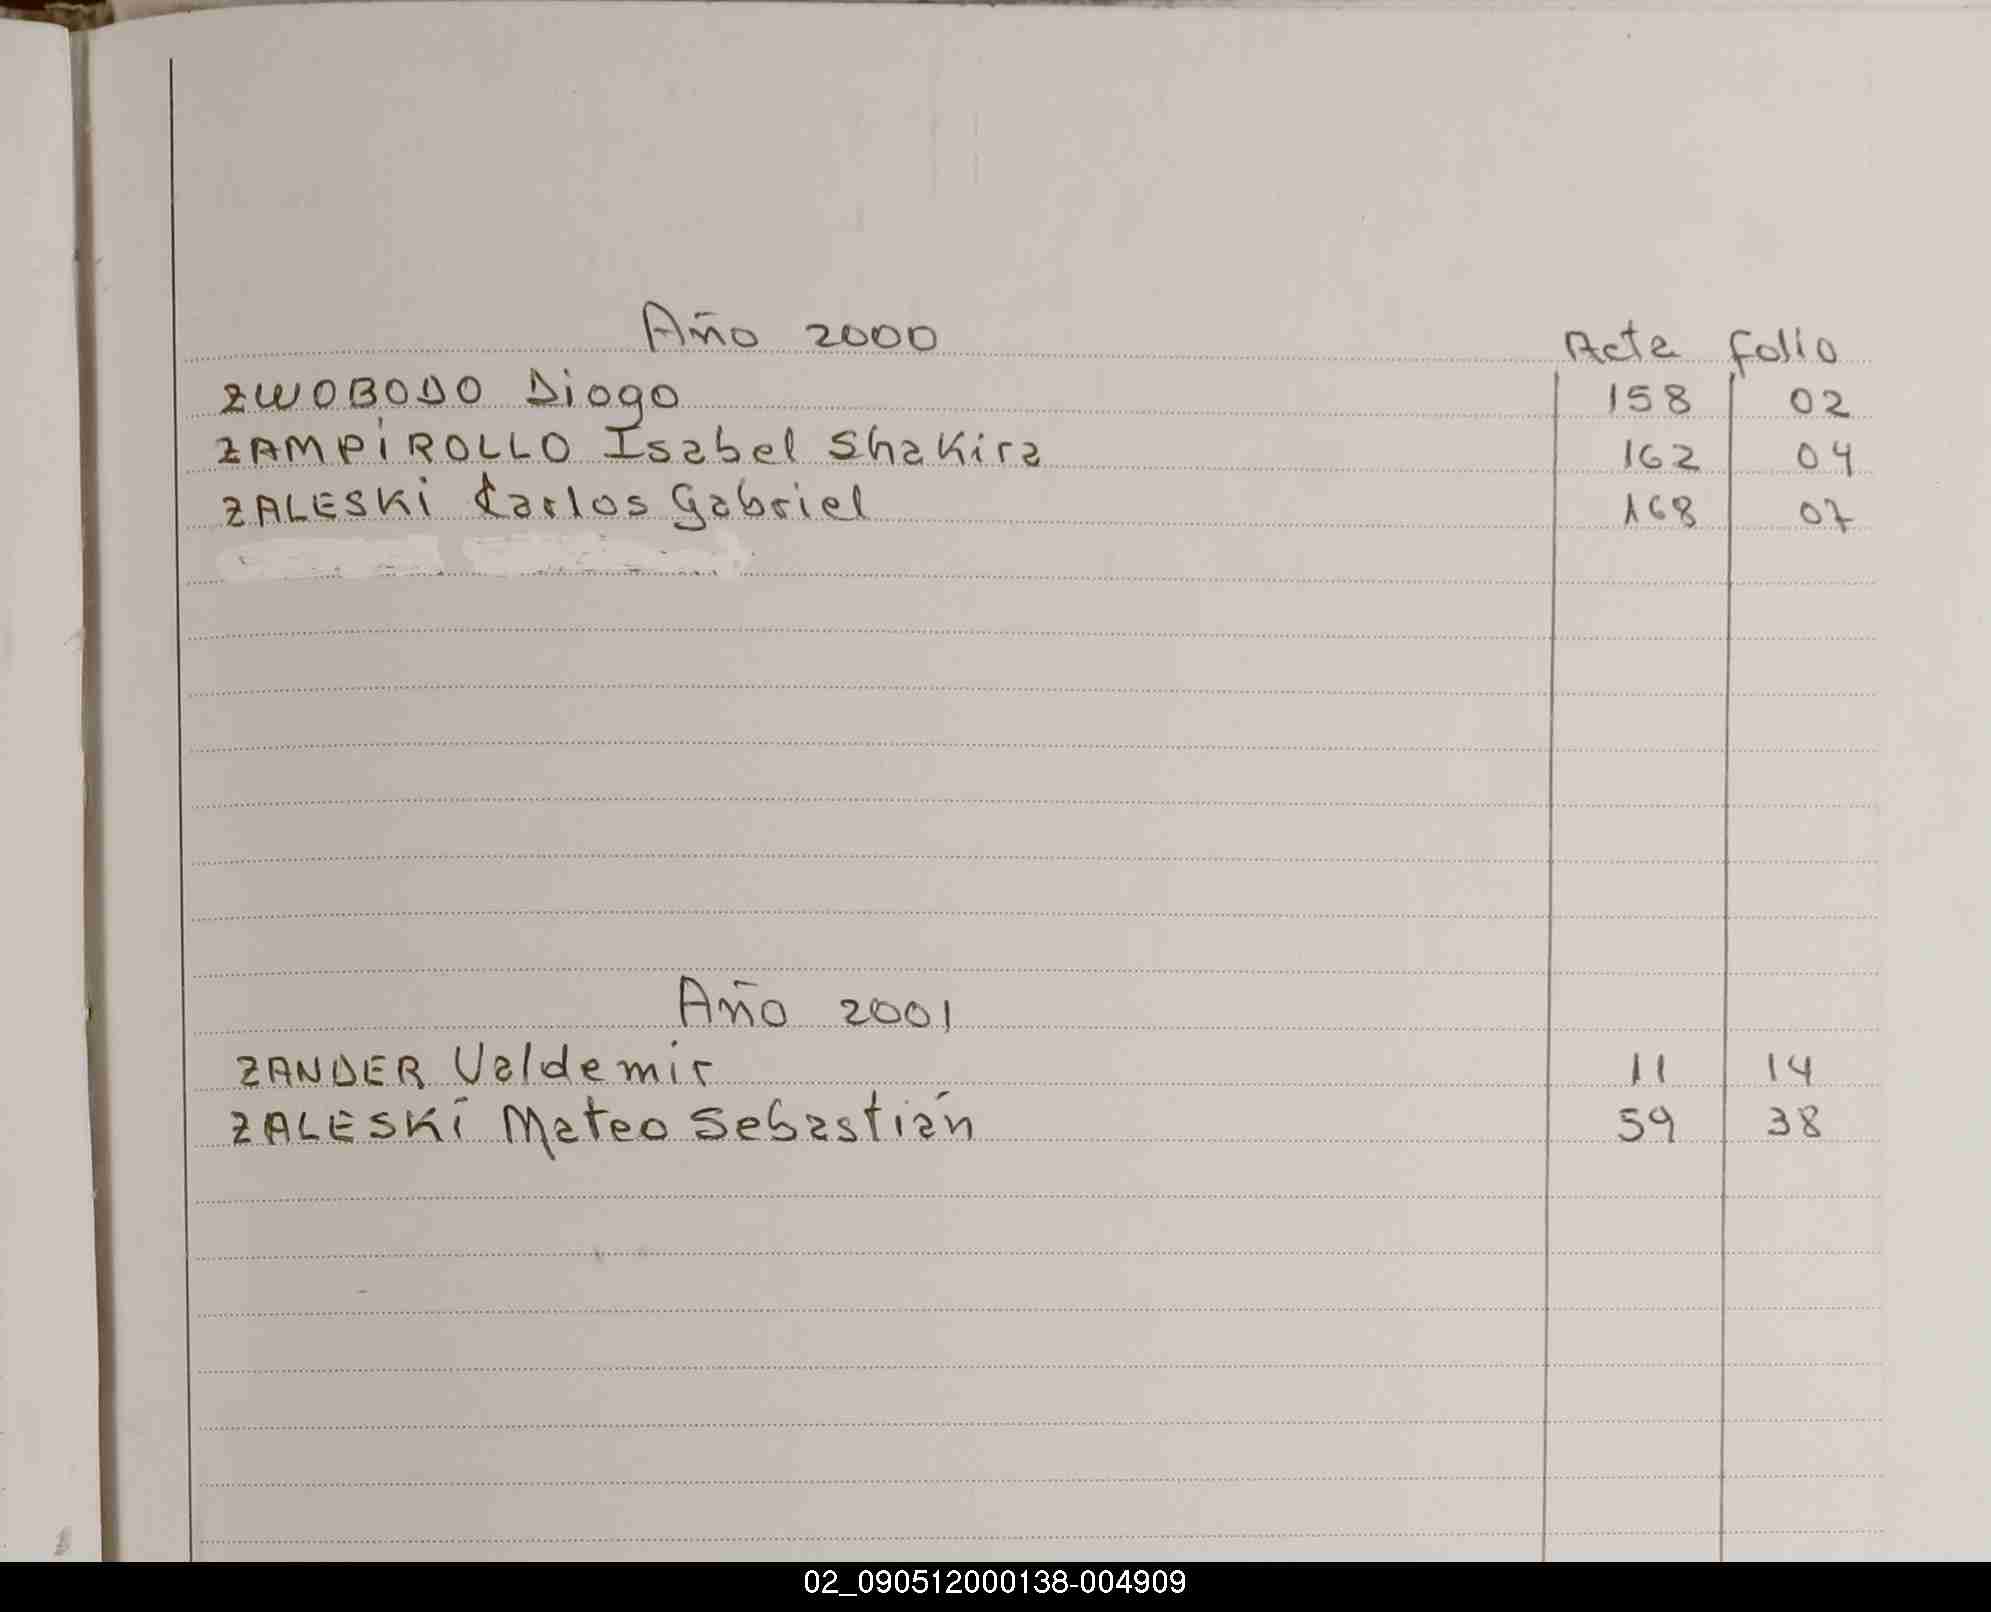 Año 2000 Acta folio
ZWOBODO Diogo 158 02
ZAMPiROLLO Isabel Shakira 162 04
ZALESKi Carlos Gabriel 168 07
Año 2001
ZANDER Valdemir 11 14
ZALESKi Mateo Sebastián 59 38
02_090512000138-004909